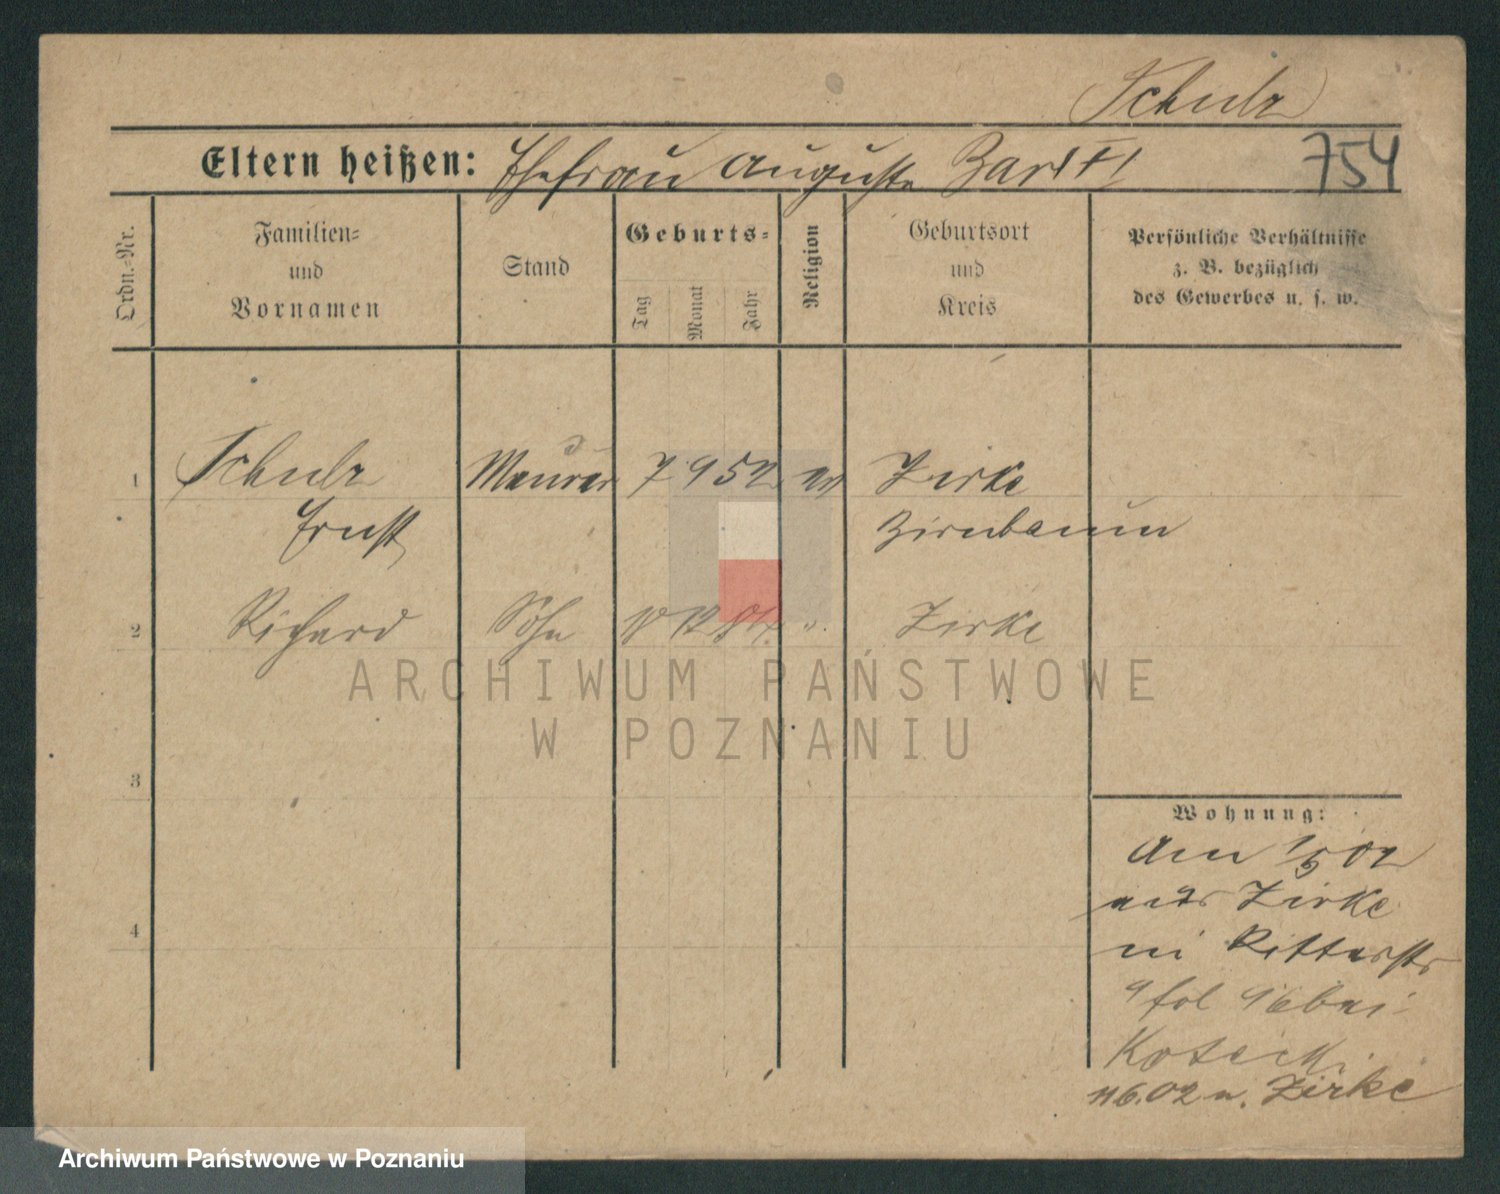 Schulz
Eltern heißen: Ehefrau Auguste
754
Ordn.-Nr.
Familien-
und
Vornamen
Stand
Geburts-
Tag
Monat
Jahr
Religion
Geburtsort
und
Kreis
Persönliche Verhältnisse
z. B. bezüglich
des Gewerbes u. s. w.
1 Schulz Maurer 7 9 52 ev Zirke
Ernst Birnbaum
2 Richard Sohn Zirke
ARCHIWUM PAŃSTWOWE
W POZNANIU
3
4
Wohnung:
Am 1/5 02
aus Zirke
in Ritterstr
9 fol 96 bei
Kotecki
11 6. 02 n. Zirke
Archiwum Państwowe w Poznaniu